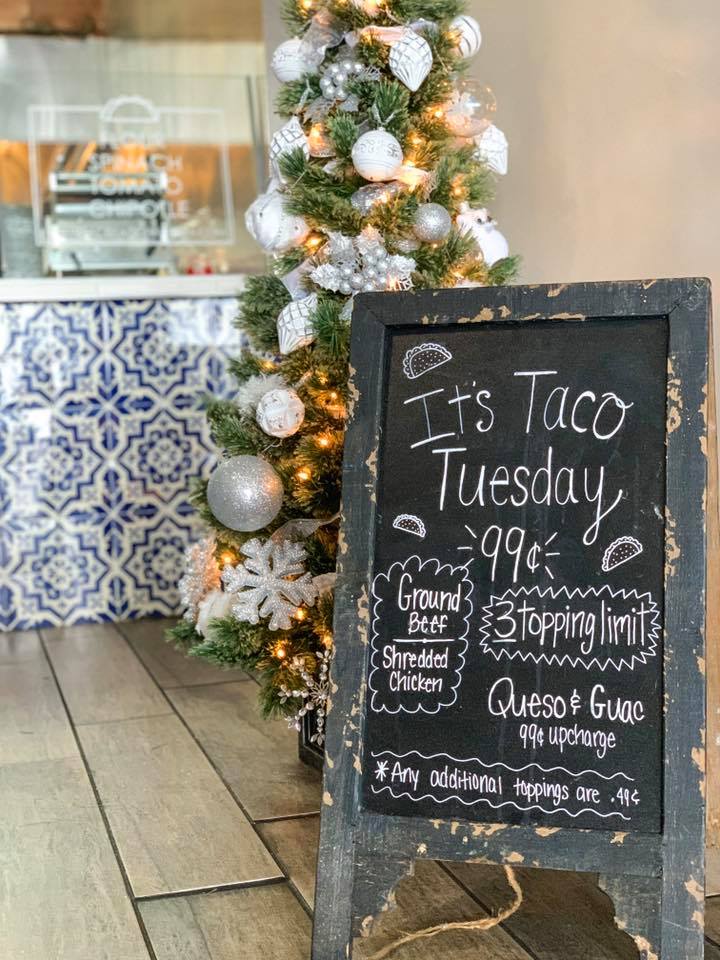 SPINACH
TOMATO
CHIPOTLE
It's Taco
Tuesday
99¢
Ground
Beef
Shredded
Chicken
3 topping limit
Queso & Guac
99¢ upcharge
*Any additional toppings are .49¢